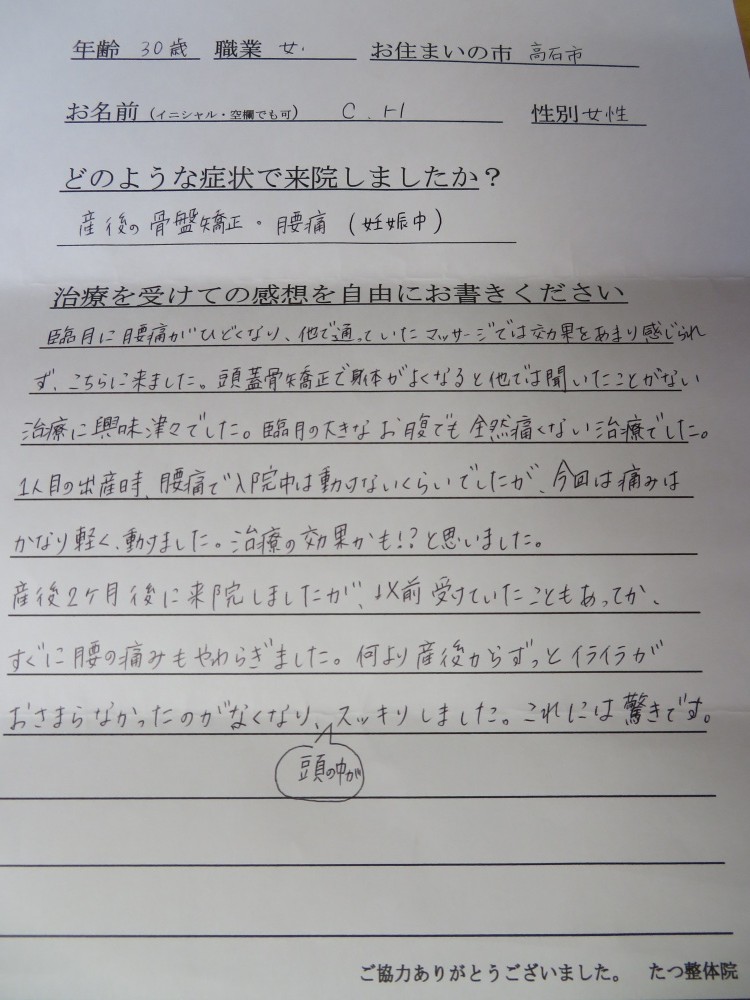 年齢 30歳 職業 女. お住まいの市 高石市
お名前（イニシャル・空欄でも可） C.H 性別 女性
どのような症状で来院しましたか？
産後の骨盤矯正・腰痛（妊娠中）
治療を受けての感想を自由にお書きください
臨月に腰痛がひどくなり、他で通っていたマッサージでは効果をあまり感じられ
ず、こちらに来ました。頭蓋骨矯正で身体がよくなると他では聞いたことがない
治療に興味津々でした。臨月の大きなお腹でも全然痛くない治療でした。
1人目の出産時、腰痛で入院中は動けないくらいでしたが、今回は痛みは
かなり軽く、動けました。治療の効果かも!?と思いました。
産後2ケ月後に来院しましたが、以前受けていたこともあってか、
すぐに腰の痛みもやわらぎました。何より産後からずっとイライラが
おさまらなかったのがなくなり、スッキリしました。これには驚きです。
頭の中が
ご協力ありがとうございました。 たつ整体院